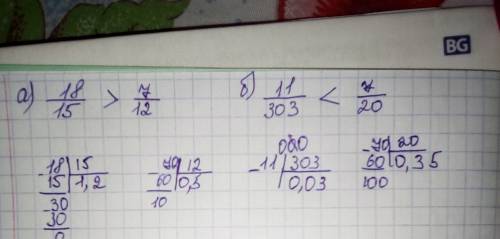 BG
а) 18/15 > 7/12 б) 11/303 < 7/20
-18 | 15 70 | 12 -11 | 303 -70 | 20
15 | 1,2 60 | 0,5 0,03 60 | 0,35
-30 10 100
30
0